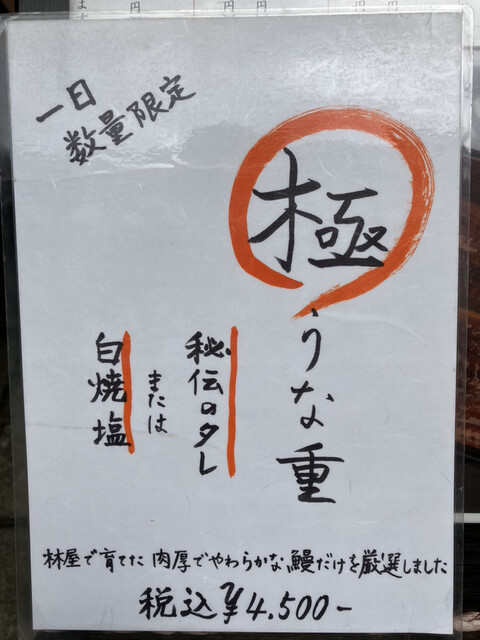 一日
数量限定
極
うな重
秘伝のタレ
または
白焼塩
林屋で育てた肉厚でやわらかな鰻だけを厳選しました
税込¥4.500-